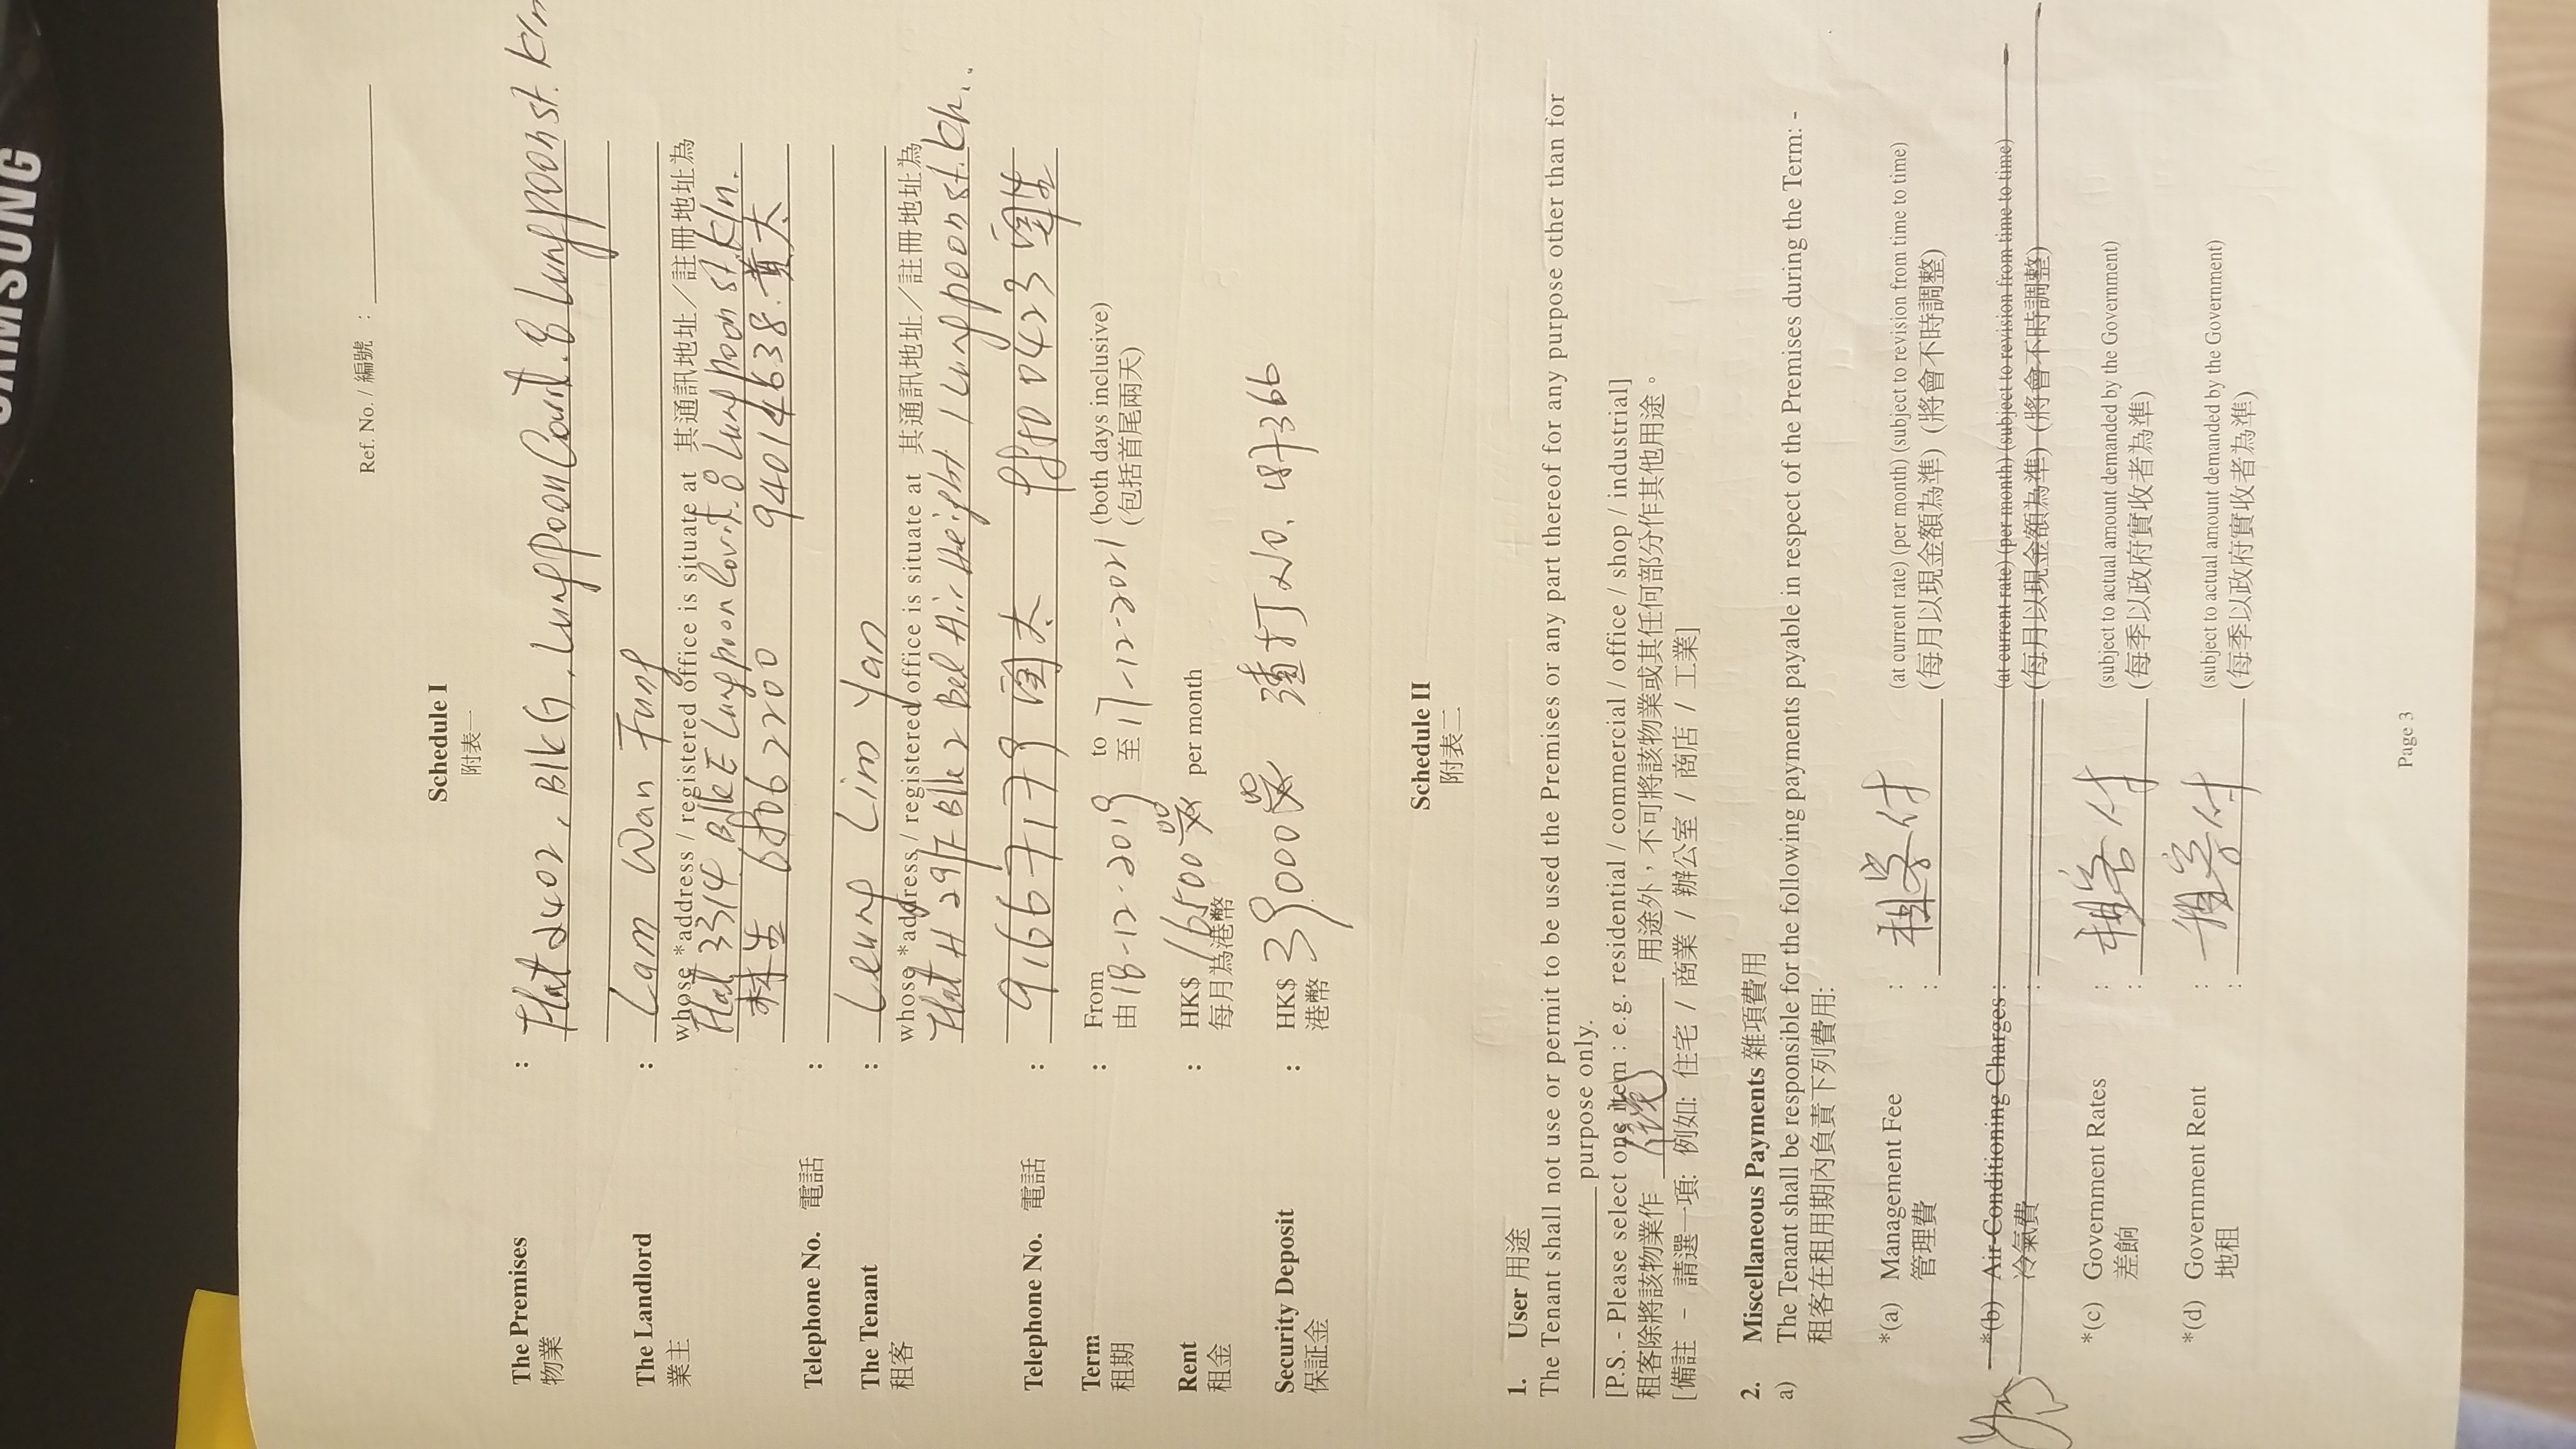 SAMSUNG
Ref. No. / 編號 :
Schedule I
附表一
The Premises : Flat 2402, Blk G, Lung Poon Court. 8 Lung Poon st. Kln
物業
The Landlord : Lam Wan Fung
業主
whose *address / registered office is situate at 其通訊地址／註冊地址為
Flat 3314 Blk E Lung Poon Court. 8 Lung Poon st. Kln.
Telephone No. 電話 : 林生 62200 94014638 黃太
The Tenant : Leung Lim Yan
租客
whose *address / registered office is situate at 其通訊地址／註冊地址為
Flat H 29/F Blk 2 Bel Air Height 1 Lung Poon st. Kln.
Telephone No. 電話 : 91667179 太 0423 生
Term : From 18-12-2019 to 17-12-2021 (both days inclusive)
租期 由 至 (包括首尾兩天)
Rent : HK$ 16500 per month
租金 每月為港幣
Security Deposit : HK$ 39000 渣打 No.
保証金 港幣
Schedule II
附表二
1. User 用途
The Tenant shall not use or permit to be used the Premises or any part thereof for any purpose other than for
purpose only.
[P.S. - Please select one item : e.g. residential / commercial / office / shop / industrial]
租客除將該物業作 用途外，不可將該物業或其任何部分作其他用途。
[備註 - 請選一項: 例如: 住宅 / 商業 / 辦公室 / 商店 / 工業]
2. Miscellaneous Payments 雜項費用
a) The Tenant shall be responsible for the following payments payable in respect of the Premises during the Term: -
租客在租用期內負責下列費用:
*(a) Management Fee : 租客付 (at current rate) (per month) (subject to revision from time to time)
管理費 : (每月以現金額為準) (將會不時調整)
*(b) Air-Conditioning Charges : (at current rate) (per month) (subject to revision from time to time)
冷氣費 : (每月以現金額為準) (將會不時調整)
*(c) Government Rates : 租客付 (subject to actual amount demanded by the Government)
差餉 : (每季以政府實收者為準)
*(d) Government Rent : 租客付 (subject to actual amount demanded by the Government)
地租 : (每季以政府實收者為準)
Page 3